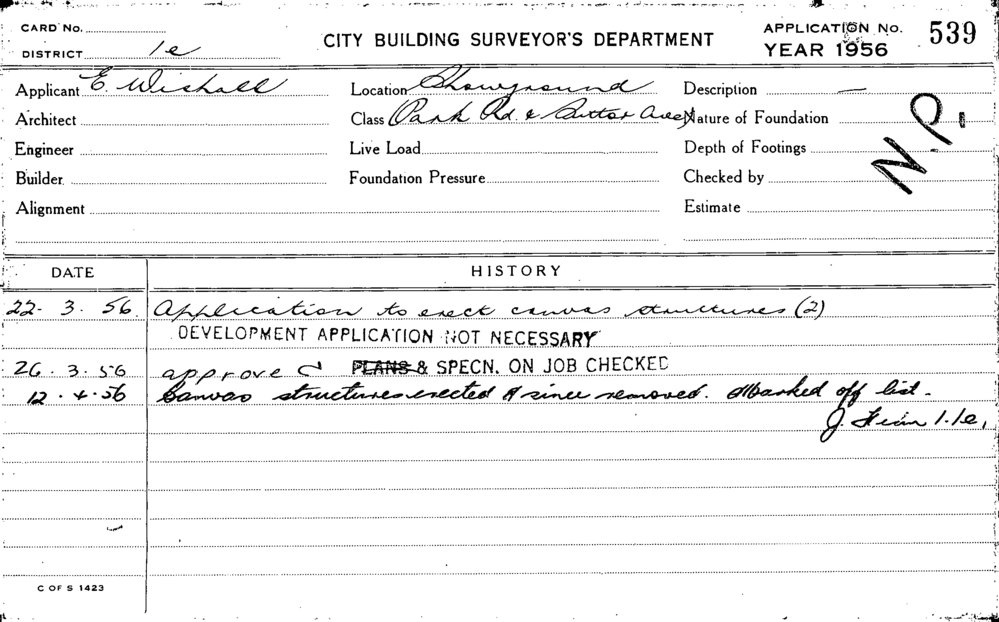 CARD No.
DISTRICT 1e
CITY BUILDING SURVEYOR'S DEPARTMENT
APPLICATION No. 539
YEAR 1956
Applicant E. Wishall Location Showground Description —
Architect Class (Park Rd. & Aves) Nature of Foundation
Engineer Live Load Depth of Footings
Builder Foundation Pressure Checked by
Alignment Estimate
N.P.
DATE HISTORY
22. 3. 56. Application to erect canvas structures (2)
DEVELOPMENT APPLICATION NOT NECESSARY
26. 3. 56 approve PLANS & SPECN. ON JOB CHECKED
12. 4. 56 Canvas structures erected & since removed. Marked off list.
J. 1.1e.
C OF S 1423